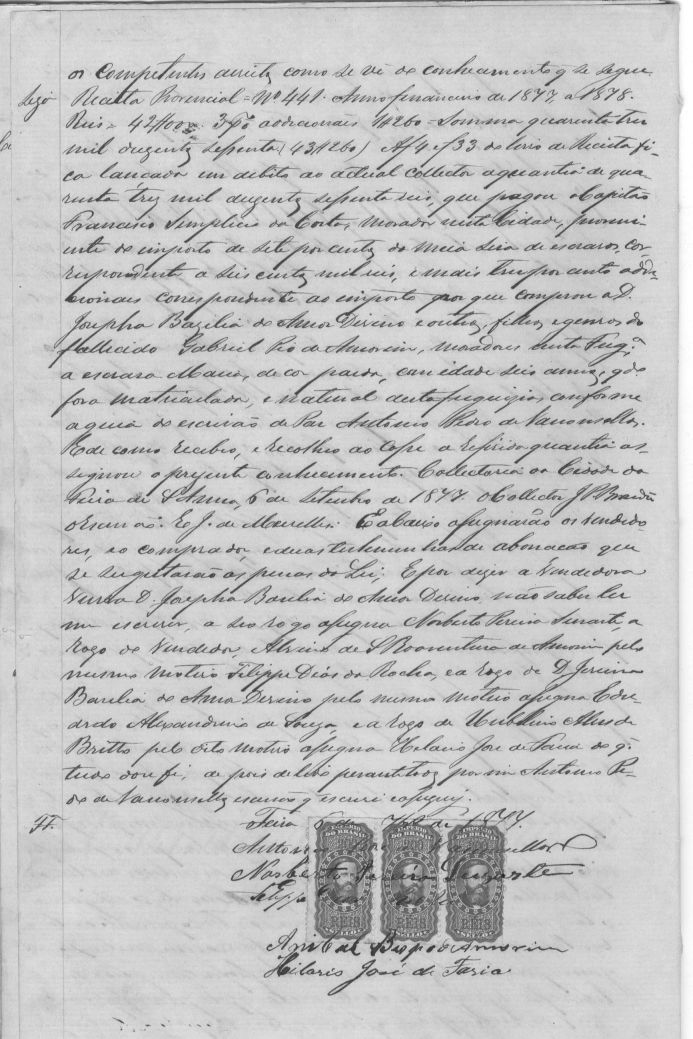 os competentes direitos como se vê do conhecimento q se segue
Receita Provincial = Nº 441. Anno financeiro de 1877 a 1878.
Reis = 42#000. 3 p% addicionais 1#260 = Somma quarenta tres
mil duzentos sessenta (43#260) Af 4 e f 33 do livro de Receita fi-
ca lançada em debito ao actual collector a quantia de qua-
renta tres mil duzentos sessenta reis, que pagou o Capitão
Francisco Simplicio da Costa, morador nesta Cidade, proveni-
ente do imposto de sete por cento de meia sisa de escravos, cor-
respondente a seis centos mil reis, e mais tres por cento addi-
cionais correspondente ao imposto por que comprou a D.
Josepha Bazilia do Amor Divino e outros, filhos e genros do
fallecido Gabriel Pio de Amorim, moradores nesta Freguª
a escrava Maria, de cor parda, com idade seis annos, q do
fora matriculada, e natural desta freguizia, conforme
a guia do escrivão de Paz Antonio Pedro de Vasconsellos.
E de como recebeo, e recolheo ao cofre a referida quantia as-
segnou o prezente conhecimento. Collectoria da Cidade da
Feira de S Anna, 6 de Setembro de 1877. O Collector J P Brandão
o Escrivão. E J. de Meirelles. E abaixo assignarão os vendedo-
res, e o comprador, e duas testemunhas de abonação que
se sugeitarão as penas da Lei. E por dizer a Vendedora
Viuva D. Josepha Basilia do Amor Divino, não saber ler
nem escrever, a seo rogo assigna Norberto Pereira Suzarte, a
rogo do Vendedor, de S Boaventura de Amorim pelo
mesmo motivo Filippe Dias da Rocha, e a rogo de D.
Basilia do Amor Divino pelo mesmo motivo assigna
Alexandrino de Souza, e a rogo de Alves de
Britto pelo dito motivo assigna Hilario José de Faria do q
tudo dou fé, depois de lido perante todos por mim Antonio Pe-
dro de Vasconsellos escrivão q escrevi e assignei.
Feira 6 de de 1877.
Antonio Vasconsellos
Norberto Pereira Suzarte
Filippe
IMPERIO DO BRASIL
IMPERIO DO BRASIL
IMPERIO DO BRASIL
Anibal Bispo de Amorim
Hilario José de Faria